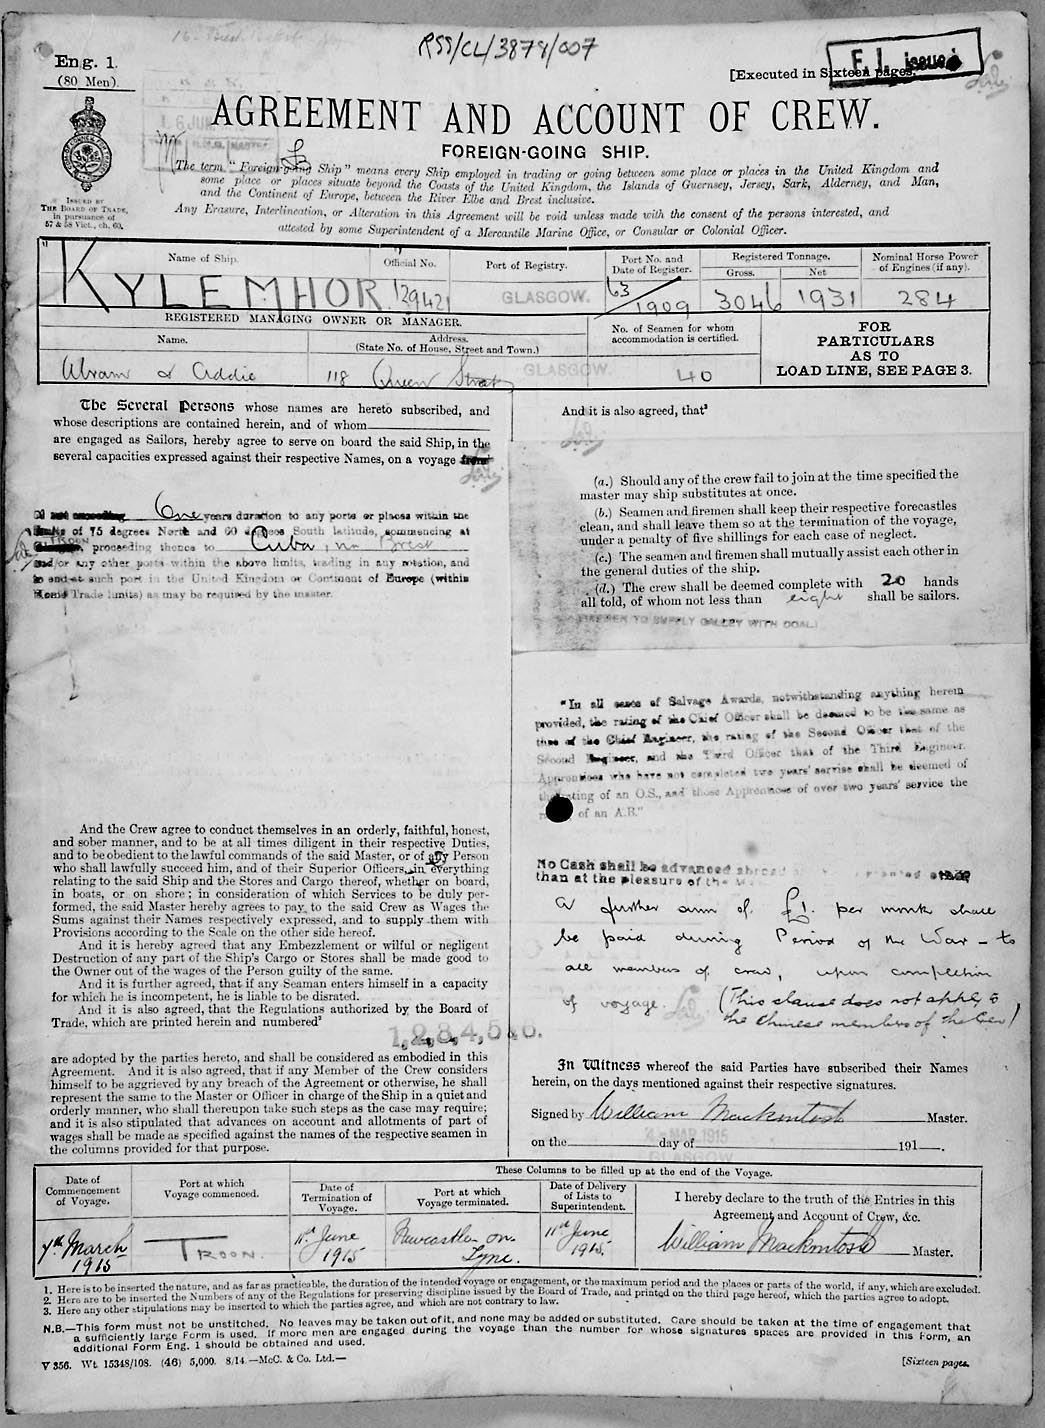 RSS/CL/3878/007
Eng. 1.
(80 Men).
[Executed in Sixteen pages.
E.I. issued
AGREEMENT AND ACCOUNT OF CREW.
FOREIGN-GOING SHIP.
The term "Foreign-going Ship" means every Ship employed in trading or going between some place or places in the United Kingdom and
some place or places situate beyond the Coasts of the United Kingdom, the Islands of Guernsey, Jersey, Sark, Alderney, and Man,
and the Continent of Europe, between the River Elbe and Brest inclusive.
ISSUED BY
THE BOARD OF TRADE,
in pursuance of
57 & 58 Vict., ch. 60.
Any Erasure, Interlineation, or Alteration in this Agreement will be void unless made with the consent of the persons interested, and
attested by some Superintendent of a Mercantile Marine Office, or Consular or Colonial Officer.
Name of Ship. Official No. Port of Registry. Port No. and Date of Register. Registered Tonnage. Gross. Net Nominal Horse Power of Engines (if any).
"KYLEMHOR" 129421 GLASGOW. 63/1909 3046 1931 284
REGISTERED MANAGING OWNER OR MANAGER.
Name. Address. (State No. of House, Street and Town.)
No. of Seamen for whom accommodation is certified.
FOR PARTICULARS AS TO LOAD LINE, SEE PAGE 3.
Abram & Addie 118 Queen Street GLASGOW. 40
The Several Persons whose names are hereto subscribed, and
whose descriptions are contained herein, and of whom
are engaged as Sailors, hereby agree to serve on board the said Ship, in the
several capacities expressed against their respective Names, on a voyage from
Of not exceeding One years duration to any ports or places within the
limits of 75 degrees North and 60 degrees South latitude, commencing at
TROON, proceeding thence to Cuba, via Brest
and/or any other ports within the above limits, trading in any rotation, and
to end at such port in the United Kingdom or Continent of Europe (within
Home Trade limits) as may be required by the master.
And the Crew agree to conduct themselves in an orderly, faithful, honest,
and sober manner, and to be at all times diligent in their respective Duties,
and to be obedient to the lawful commands of the said Master, or of any Person
who shall lawfully succeed him, and of their Superior Officers, in everything
relating to the said Ship and the Stores and Cargo thereof, whether on board,
in boats, or on shore; in consideration of which Services to be duly per-
formed, the said Master hereby agrees to pay to the said Crew as Wages the
Sums against their Names respectively expressed, and to supply them with
Provisions according to the Scale on the other side hereof.
And it is hereby agreed that any Embezzlement or wilful or negligent
Destruction of any part of the Ship's Cargo or Stores shall be made good to
the Owner out of the wages of the Person guilty of the same.
And it is further agreed, that if any Seaman enters himself in a capacity
for which he is incompetent, he is liable to be disrated.
And it is also agreed, that the Regulations authorized by the Board of
Trade, which are printed herein and numbered²
1,2,3,4,5&6.
are adopted by the parties hereto, and shall be considered as embodied in this
Agreement. And it is also agreed, that if any Member of the Crew considers
himself to be aggrieved by any breach of the Agreement or otherwise, he shall
represent the same to the Master or Officer in charge of the Ship in a quiet and
orderly manner, who shall thereupon take such steps as the case may require;
and it is also stipulated that advances on account and allotments of part of
wages shall be made as specified against the names of the respective seamen in
the columns provided for that purpose.
And it is also agreed, that³
(a.) Should any of the crew fail to join at the time specified the
master may ship substitutes at once.
(b.) Seamen and firemen shall keep their respective forecastles
clean, and shall leave them so at the termination of the voyage,
under a penalty of five shillings for each case of neglect.
(c.) The seamen and firemen shall mutually assist each other in
the general duties of the ship.
(d.) The crew shall be deemed complete with 20 hands
all told, of whom not less than eight shall be sailors.
TO SUPPLY GALLEY WITH COAL
"In all cases of Salvage Awards, notwithstanding anything herein
provided, the rating of the Chief Officer shall be deemed to be the same as
that of the Chief Engineer, the rating of the Second Officer that of the
Second Engineer, and the Third Officer that of the Third Engineer.
Apprentices who have not completed two years' service shall be deemed of
the rating of an O.S., and those Apprentices of over two years' service the
of an A.B."
No Cash shall be advanced abroad
than at the pleasure of the
A further sum of £1. per month shall
be paid during Period of the War - to
all members of crew, upon completion
of voyage. (This clause does not apply to
the Chinese members of the Crew)
In Witness whereof the said Parties have subscribed their Names
herein, on the days mentioned against their respective signatures.
Signed by William Mackintosh Master.
on the day of 191 .
MAR 1915
GLASGOW
These Columns to be filled up at the end of the Voyage.
Date of Commencement of Voyage. Port at which Voyage commenced. Date of Termination of Voyage. Port at which Voyage terminated. Date of Delivery of Lists to Superintendent.
I hereby declare to the truth of the Entries in this
Agreement and Account of Crew, &c.
7th March 1915 TROON. 11th June 1915 Newcastle on Tyne. 11th June 1915. William Mackintosh Master.
1. Here is to be inserted the nature, and as far as practicable, the duration of the intended voyage or engagement, or the maximum period and the places or parts of the world, if any, which are excluded.
2. Here are to be inserted the Numbers of any of the Regulations for preserving discipline issued by the Board of Trade, and printed on the third page hereof, which the parties agree to adopt.
3. Here any other stipulations may be inserted to which the parties agree, and which are not contrary to law.
N.B.—This form must not be unstitched. No leaves may be taken out of it, and none may be added or substituted. Care should be taken at the time of engagement that
a sufficiently large Form is used. If more men are engaged during the voyage than the number for whose signatures spaces are provided in this Form, an
additional Form Eng. 1 should be obtained and used.
V 356. Wt 15348/108. (46) 5,000. 8/14.—McC. & Co. Ltd.—
[Sixteen pages.